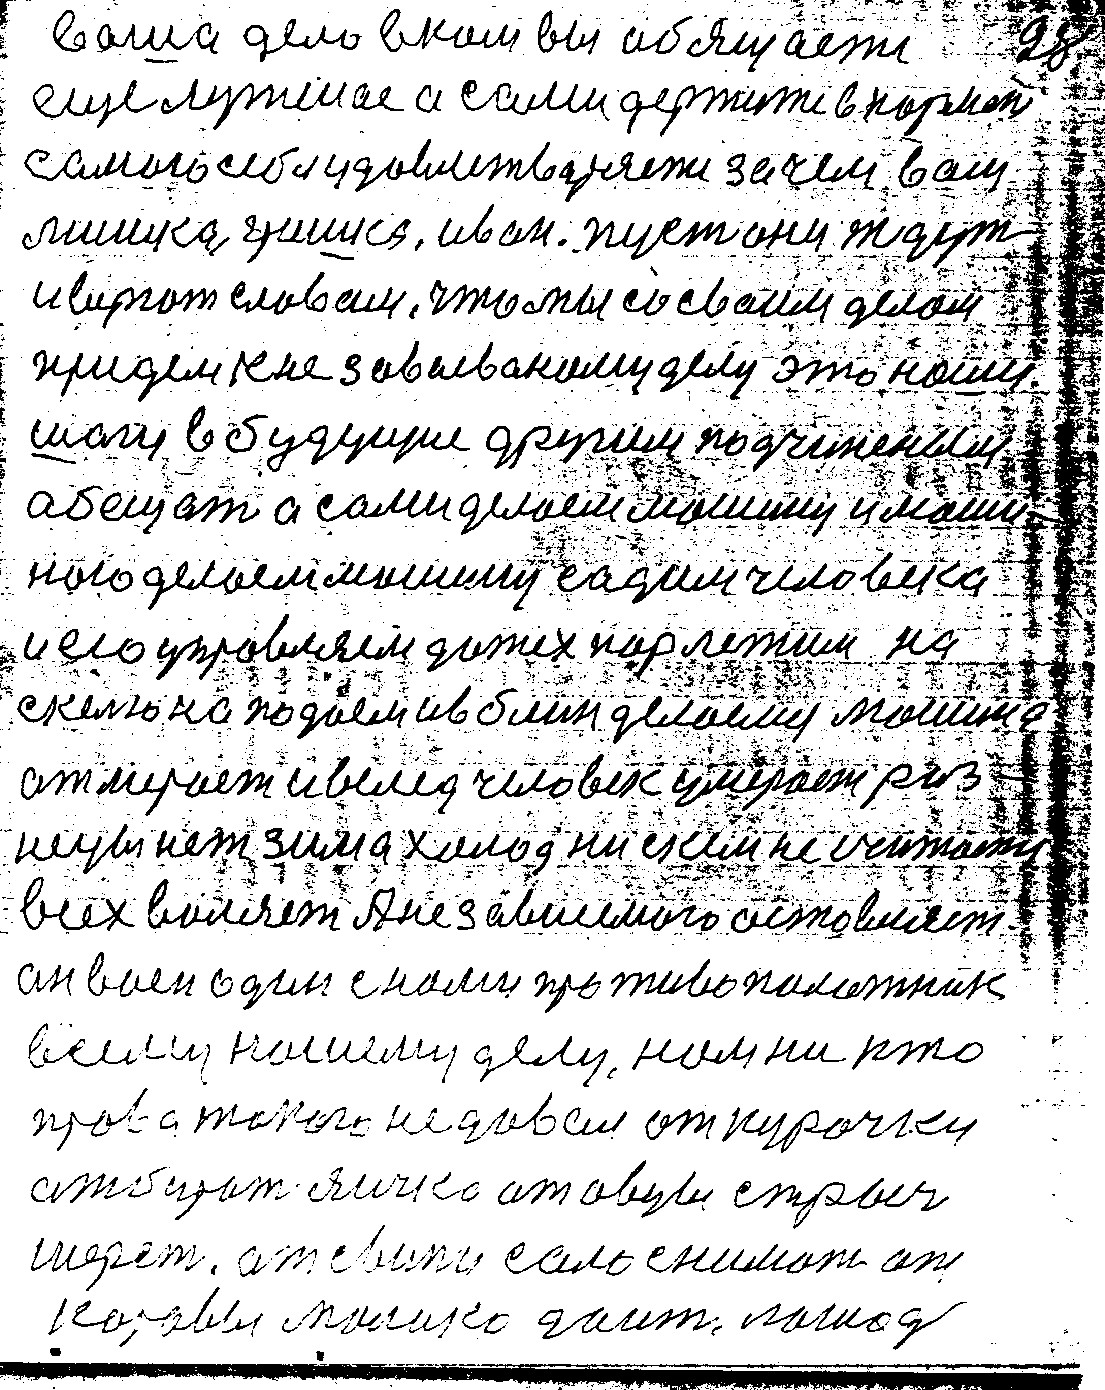 ваша дело вком вы обящаети 28
еще лутшае а сами держите в карман
самого себя удовлетворяети зачем ваш
мишка, гришка, иван. пуст они ждут
иверют словам, что мы со своим делом
придем к не завоеваному делу это наши
шаги в будущие другим подчиненым
абещат а сами делаем машину имаши
ного делаем машину садим человека
иего управляем дажех пар летим на
скемю на подаем ив блин делаему машина
атмирает ивслед человек умерает раз
неуви нет зима холод ни скем не считаети
всех валяет Анезависимого оставляет
ан воен один снами противоположник
всему нашему делу, нам ни кто
права такого недавал от курочки
атбират яичко атовцы стрыч
шерст. ат свини сало снимат ат
каровы малако даит. лошод